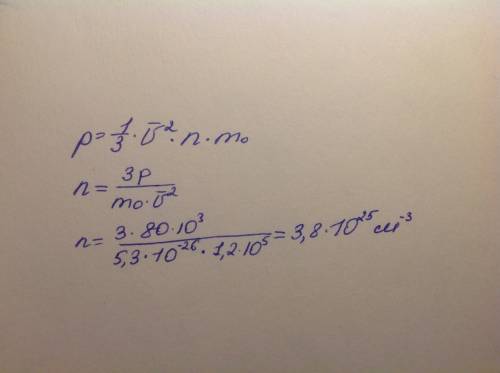 p = 1/3 · v̄² · n · m₀
n = 3p / m₀ · v̄²
n = 3 · 80 · 10³ / 5,3 · 10⁻²⁶ · 1,2 · 10⁵ = 3,8 · 10²⁵ м⁻³